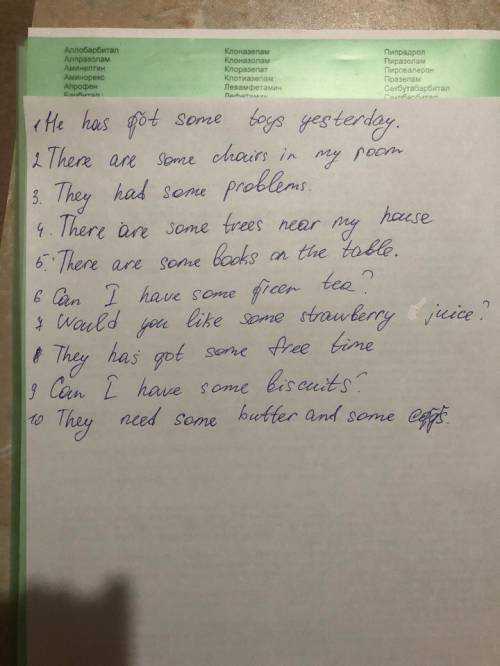 Аллобарбитал Клоназепам Пипрадрол
Алпразолам Клоназолам Пиразолам
Аминептин Клоразепат Пировалерон
Аминорекс Клотиазепам Празепам
Апрофен Левамфетамин Секбутабарбитал
1 He has got some toys yesterday.
2 There are some chairs in my room
3. They had some problems.
4. There are some trees near my house
5. There are some books on the table.
6 Can I have some green tea?
7 Would you like some strawberry juice?
8 They has got some free time
9 Can I have some biscuits?
10 They need some butter and some eggs.